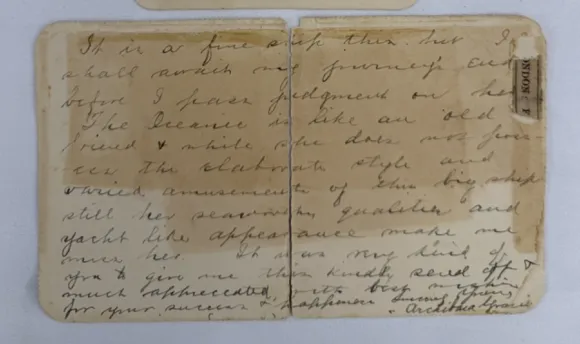 It is a fine ship this but I
shall await my journey's end
before I pass judgment on her.
The Oceanic is like an old
friend & while she does not poss-
ess the elaborate style and
varied amusements of this big ship
still her seaworthy qualities and
yacht like appearance make me
miss her. It was very kind of
you to give me this kindly send off &
much appreciated with best wishes
for your success & happiness
Sincerely yours
Archibald Gracie
ONDON